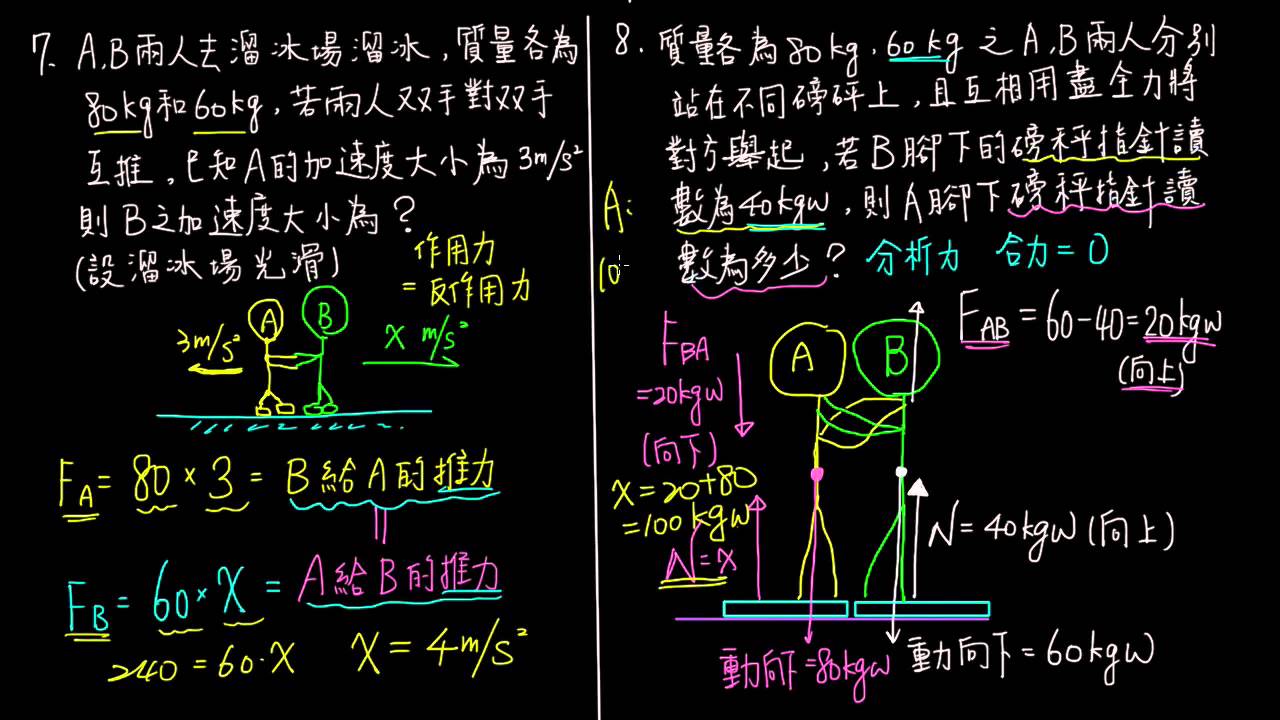 7. A,B兩人去溜冰場溜冰，質量各為
80kg和60kg，若兩人双手對双手
互推，已知A的加速度大小為3m/s²
則B之加速度大小為？
(設溜冰場光滑)
作用力
=反作用力
A
B
3m/s²
X m/s²
F_A = 80 × 3 = B給A的推力
||
F_B = 60 × X = A給B的推力
240 = 60·X
X = 4m/s²
8. 質量各為80kg、60kg之A,B兩人分別
站在不同磅秤上，且互相用盡全力將
對方舉起，若B腳下的磅秤指針讀
數為40kgw，則A腳下磅秤指針讀
數為多少？
分析力 合力=0
A:
10
F_AB = 60-40=20kgw
(向上)
F_BA
=20kgw
(向下)
A
B
X=20+80
=100kgw
N=X
N=40kgw(向上)
重力向下=80kgw
重力向下=60kgw